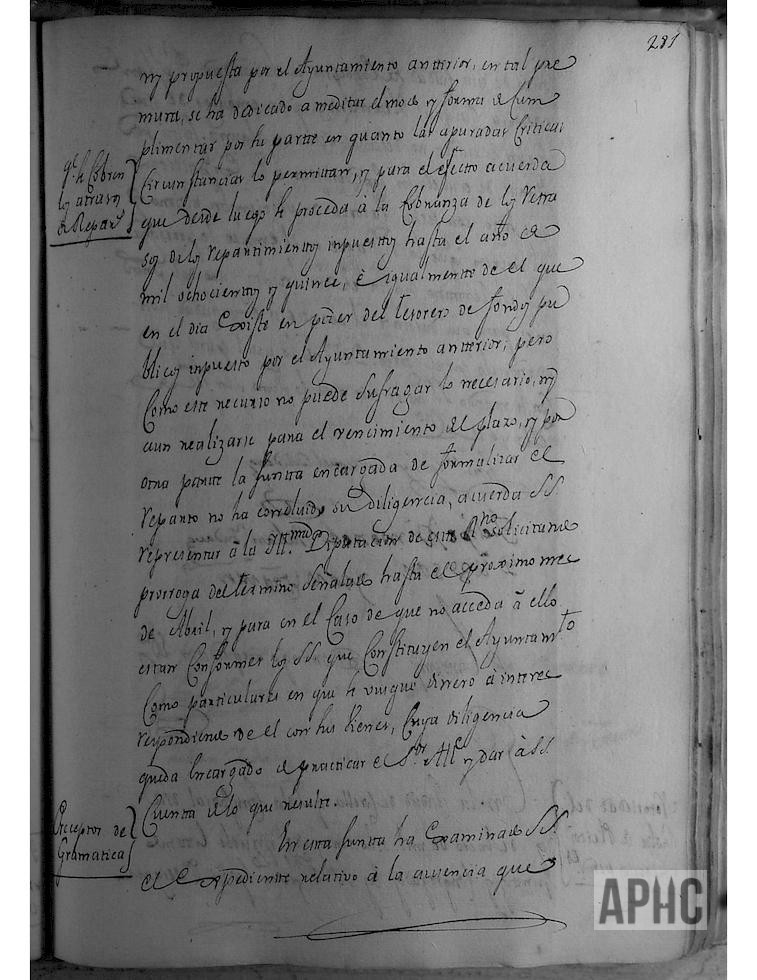 281
ni propuesta por el Ayuntamiento antterior, en tal pre
mura, se ha dedicado a meditar el modo y forma de Cum
plimentar por su partte en quanto las apuradas Criticas
Circunstancias lo permittan, y para el efectto acuerda
qe. se Cobren
los atrasos
de Reparts.
que desde luego se proceda à la Cobranza de los Retra
sos de los repartimienttos inpuesttos hasta el año de
mil ochocienttos y quince, è igualmentte de el que
en el dia Existe en poder del Tesorero de fondos pu
blicos inpuesto por el Ayuntamiento antterior; pero
Como este recurso no puede Sufragar lo necesario, ni
aun realizarse para el vencimiento del plazo, y por
otra partte la Juntta encargada de formalizar el
reparto no ha concluido su diligencia, acuerda SS.
representar à la Illma. Diputacion de este Rno. solicitando
prorroga del termino Señalado hasta el proximo mes
de Abril, y para en el Caso de que no acceda à ello
estan Conformes los SS. que Constituyen el Ayuntamto.
Como particulares en que se busque dinero à interes
respondiendo de el con sus bienes, Cuya diligencia
queda Encargado de practicar el Sor. Alce. y dar à SS.
Cuenta de lo que resulte.
Preceptor de
Gramatica
En esta Juntta ha Examinado SS.
el Expedientte relativo à la ausencia que
APHC